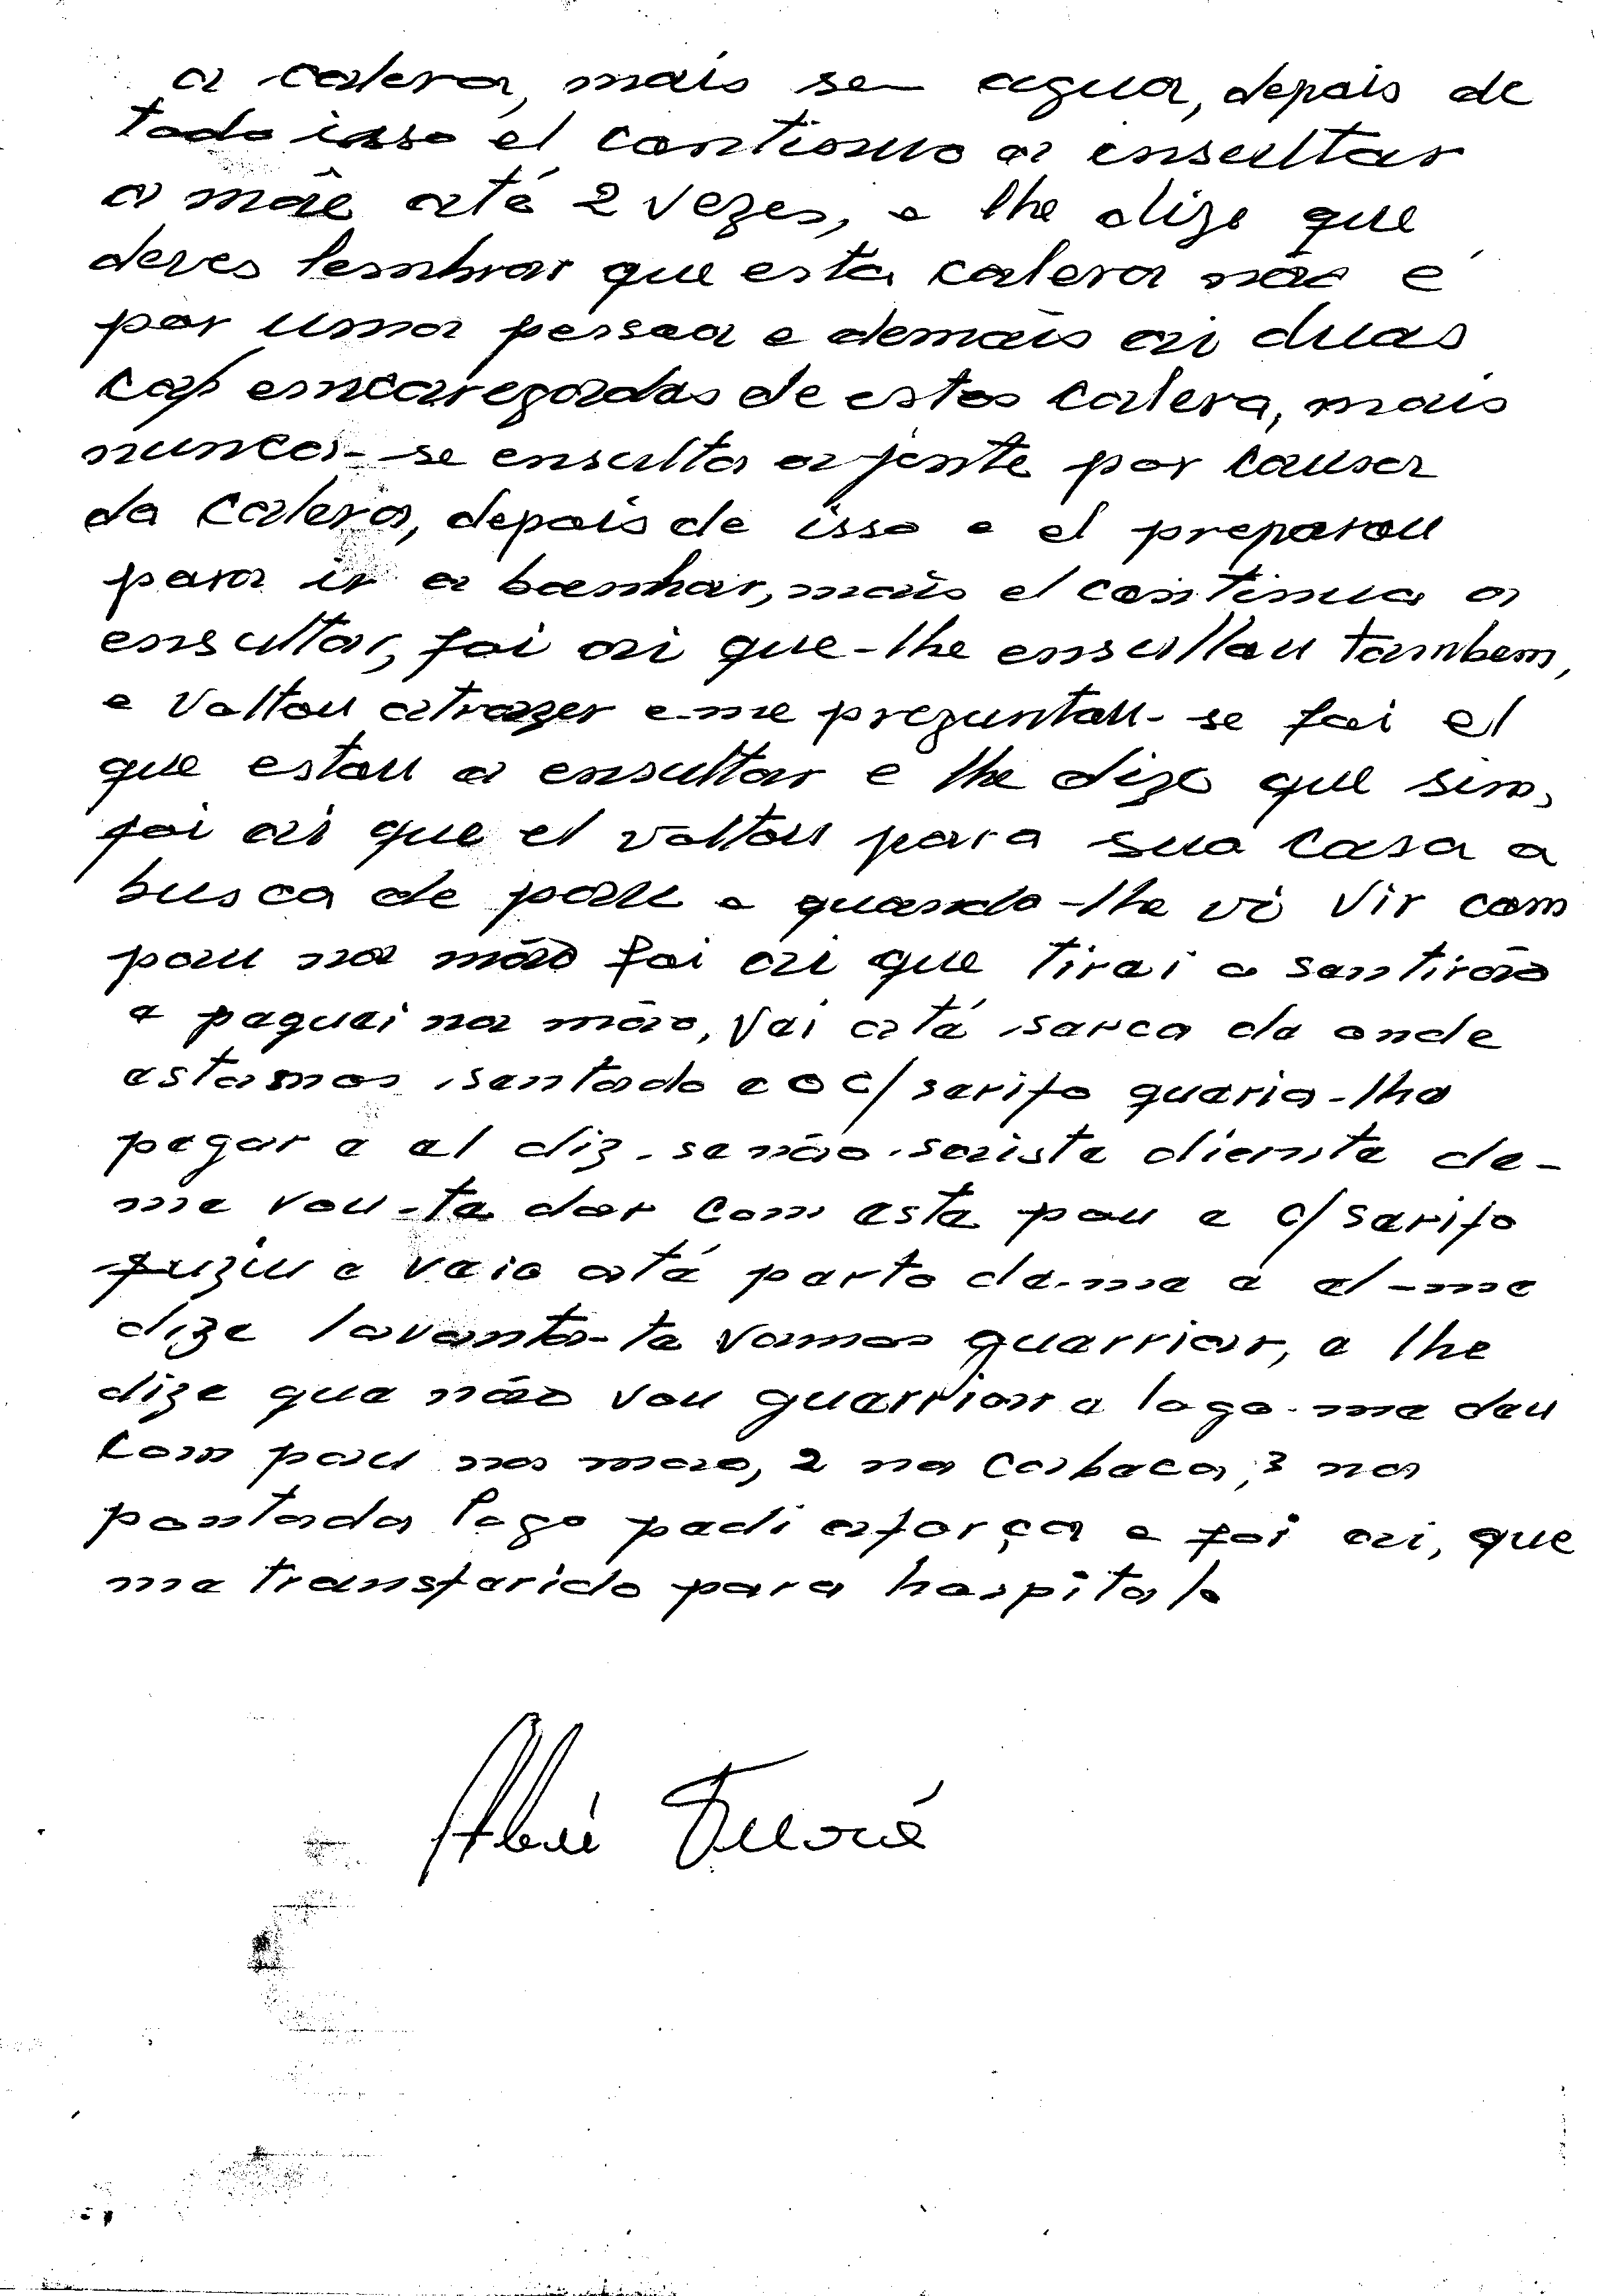 a calera, mais sem agua, depois de
todo isso el continuo a ensultar
a mãe até 2 vezes, e lhe dize que
deves lembrar que esta calera não é
por uma pessoa e demais ai duas
cap encaregadas de estes calera, mais
nunca-se ensulta a jente por causa
da Calera, depois de isso e el preparou
para ir a banhar, mais el continua a
ensultar, foi ai que-lhe ensultou tambem,
e voltou atrazer e-me preguntou-se foi el
que estou a ensultar e lhe dize que sim,
foi ai que el voltou para sua casa a
busca de pau e quando-lhe vi vir com
pau na mão foi ai que tirai o santirão
e peguei na mão, vei até sarca de onde
estamos sentado e o c/ sarifo queria-lhe
pegar e el diz-se não saiste diente de-
me vou-te dar com este pau e c/ sarifo
fuziu e veio até perto de-me e el-me
dize levanta-te vamos guerriar, e lhe
dize que não vou guerriar e logo-me deu
com pau na mao, 2 na cabeca, 3 na
pontada logo pedi aforça e foi ai, que
me transferido para hospital.